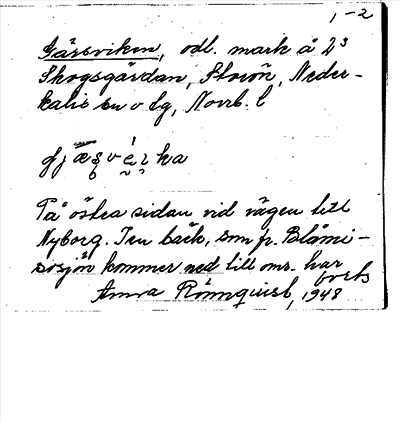 1-2
Gärsviken, odl. mark å 2³
Skogsgärdan, Storön, Neder-
kalix sn o lg, Norrb. l
På östra sidan vid vägen till
Nyborg. I en bäck, som fr. Blåmi-
sosjön kommer ned till omr. har
Anna Rönnquist, 1948